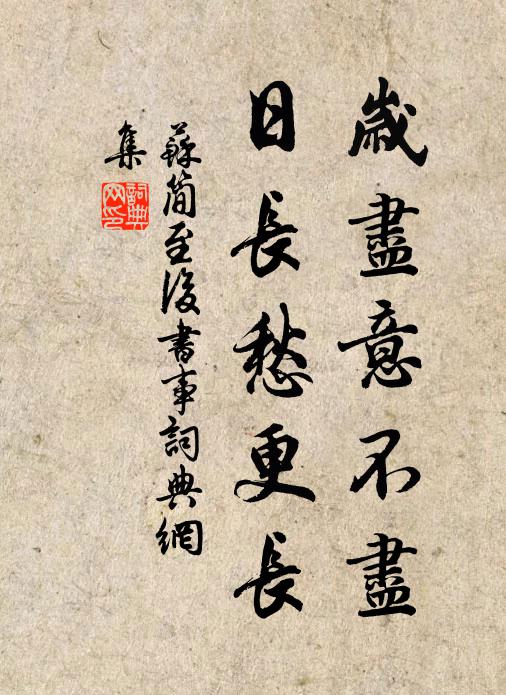 歲盡意不盡
日長愁更長
蘇簡至後書事詞典網
集
詞典
网印